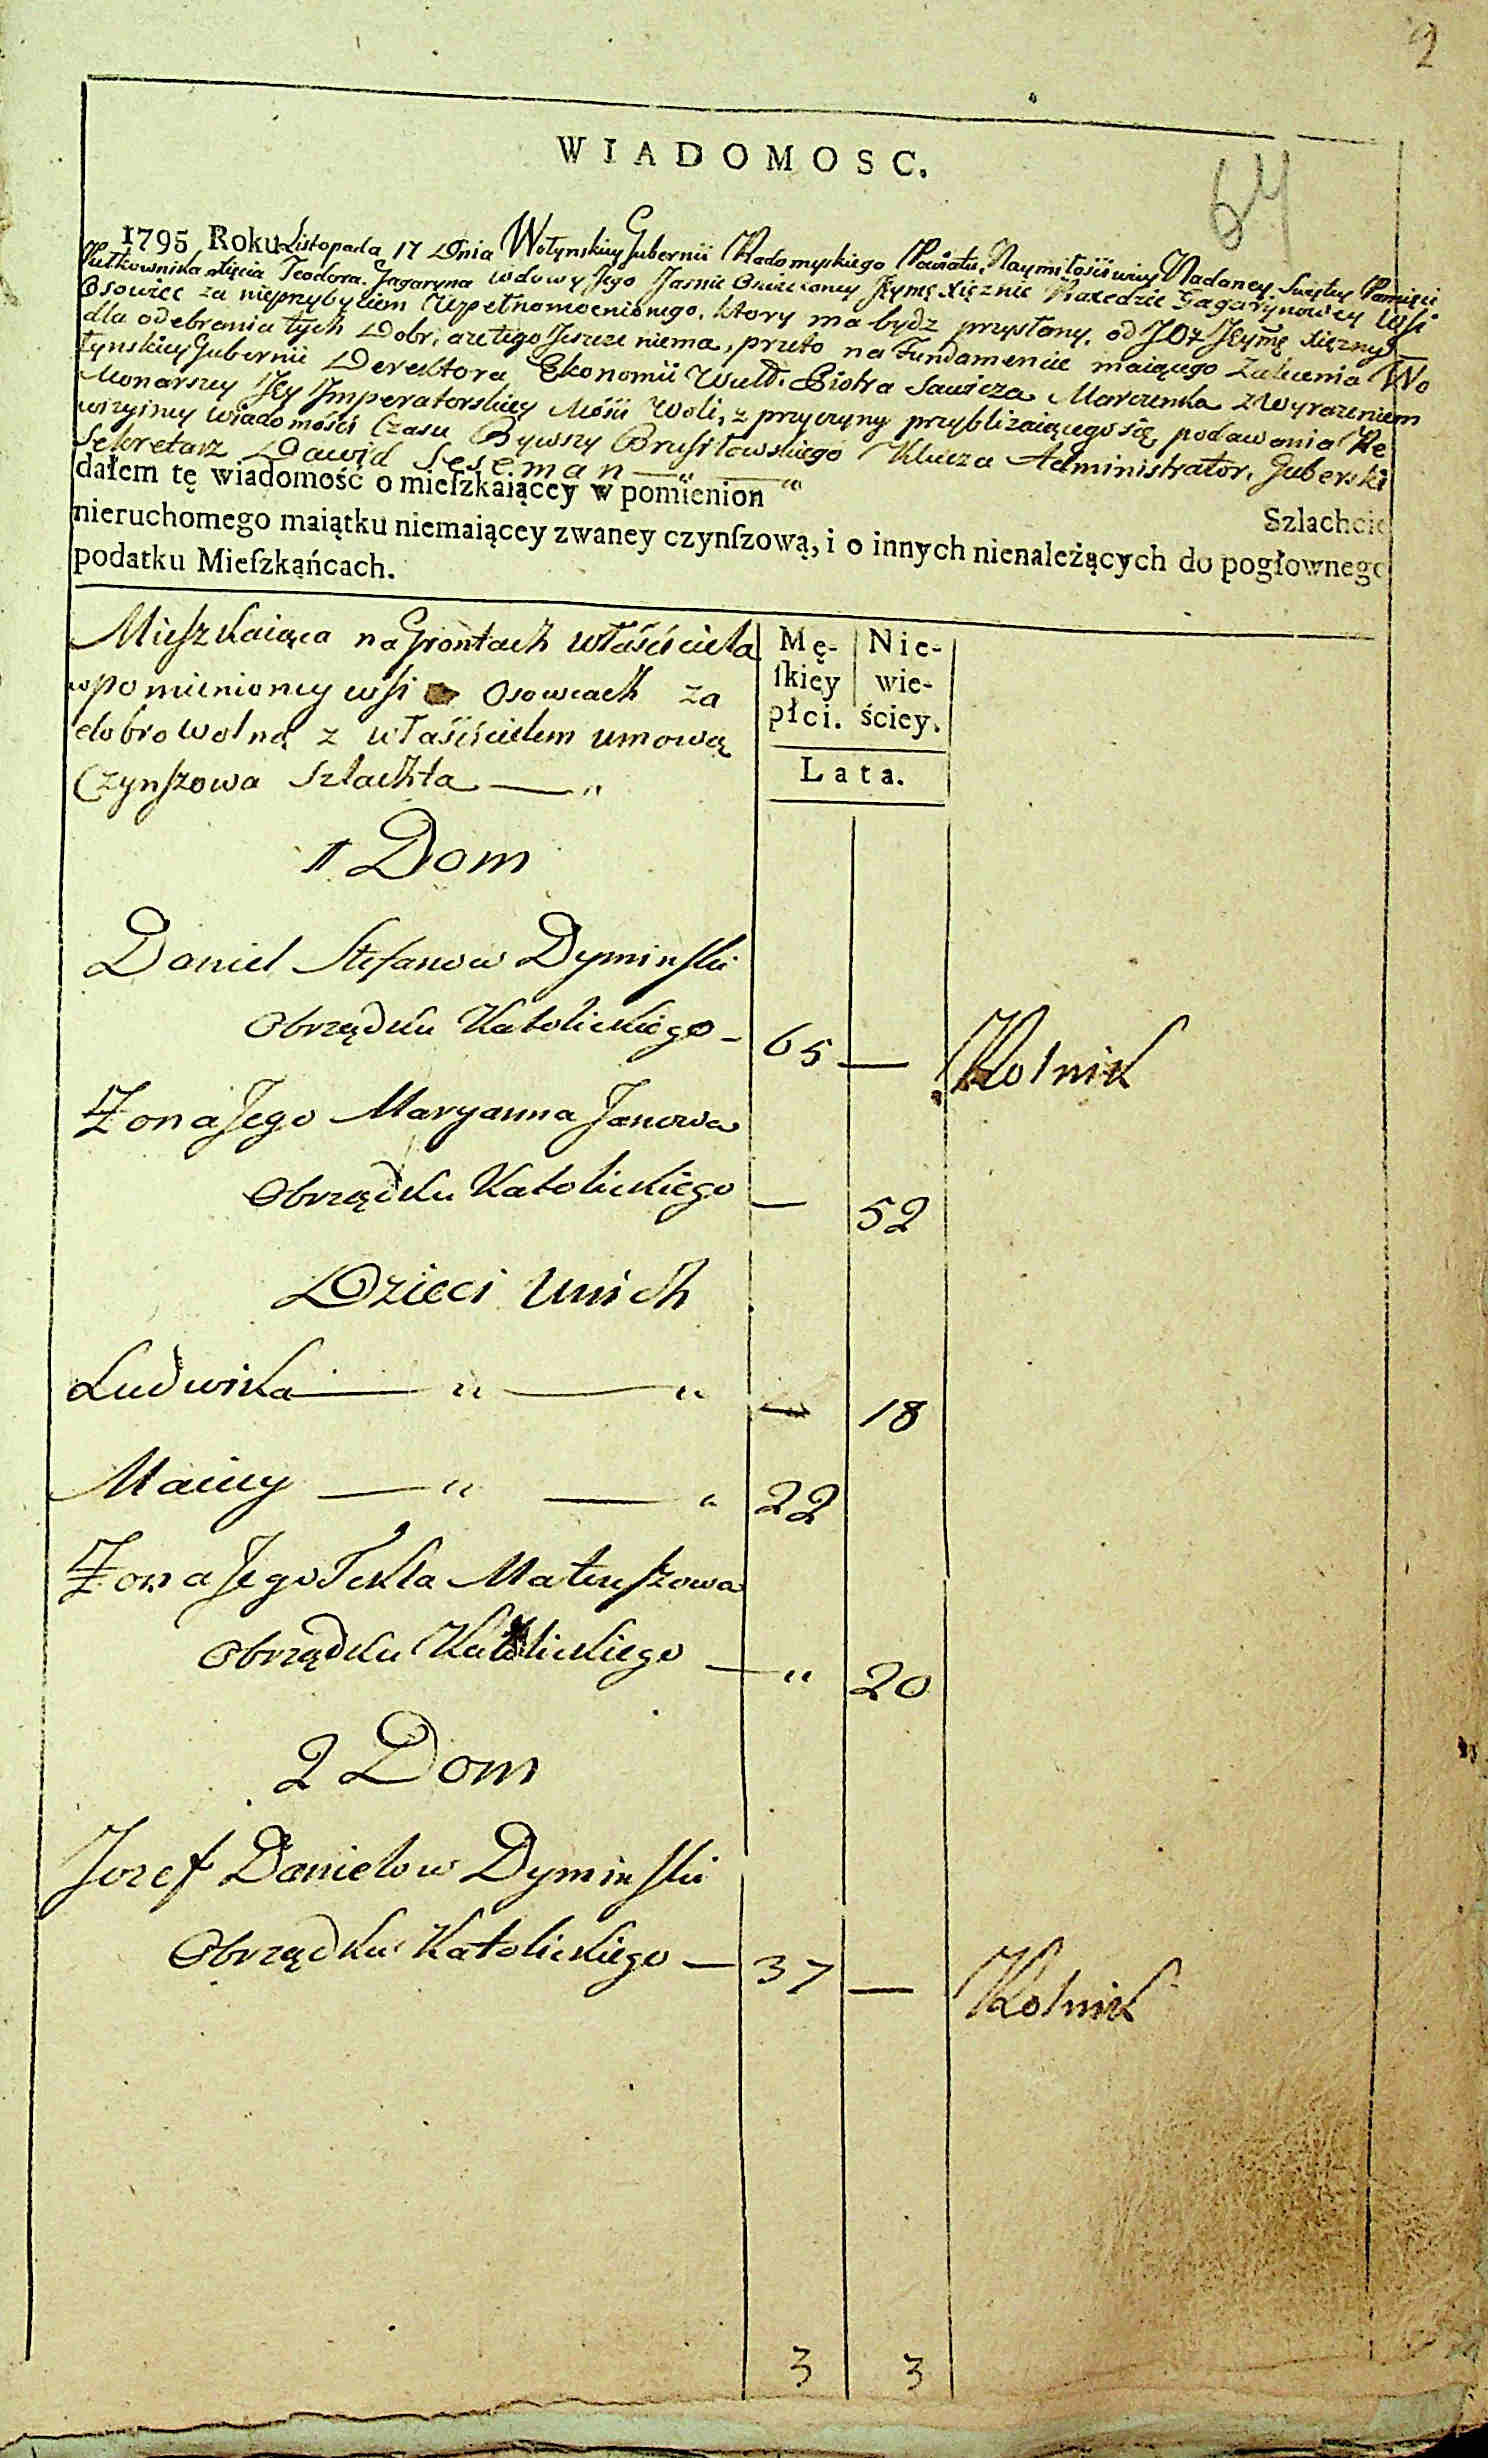 2
WIADOMOSC.
64
1795 Roku Listopada 17 Dnia Wołynskiey Gubernii Radomyskiego Powiatu, Naymiłościwiey Nadaney Swiętey Pamięci
Pułkownika xięcia Teodora Gagaryna wdowy Jego Jasnie Oswieconey Jeymę xięznie Praxedzie Gagarynowey wsi
Osowiec za nieprzybyciem Upełnomocnionego, ktory ma bydz przysłany, od JOz Jeymę xięzny
dla odebrania tych Dobr, aze tego Jeszcze niema, przeto na Fundamencie maiącego Zalecenia Wo
łynskiey Gubernii Derektora Ekonomii Piotra Sawicza Marczenka z Wyrazeniem
Monarszey Jey Imperatorskiey Mości Woli, z przyczyny przyblizaiącego się podawania Re
wizyiney wiadomości Czasu Bywszy Brusiłowskiego Klucza Administrator, Guberski
Sekretarz Dawid Seseman — " — "
dałem tę wiadomość o mieſzkaiącey w pomienion Szlachcie
nieruchomego maiątku niemaiącey zwaney czynſzową, i o innych nienależących do pogłownego
podatku Mieſzkańcach.
Mieszkaiąca na Grontach właściciela
wpomienioney wsi Osowcach za
dobrowolną z właścicielem umową
Czynszowa Szlachta — "
Mę- Nie-
ſkiey wie-
płci. ściey.
Lata.
1 Dom
Daniel Stefanow Dyminski
Obrządku Katolickiego — 65 — Rolnik
Zona Jego Maryanna Janowa
Obrządku Katolickiego — 52
Dzieci Unich
Ludwika — " — " — 18
Maciey — " — " 22
Zona Jego Tekla Mateuszowa
Obrządku Katolickiego — " 20
2 Dom
Jozef Danielow Dyminski
Obrządku Katolickiego — 37 — Rolnik
3 3